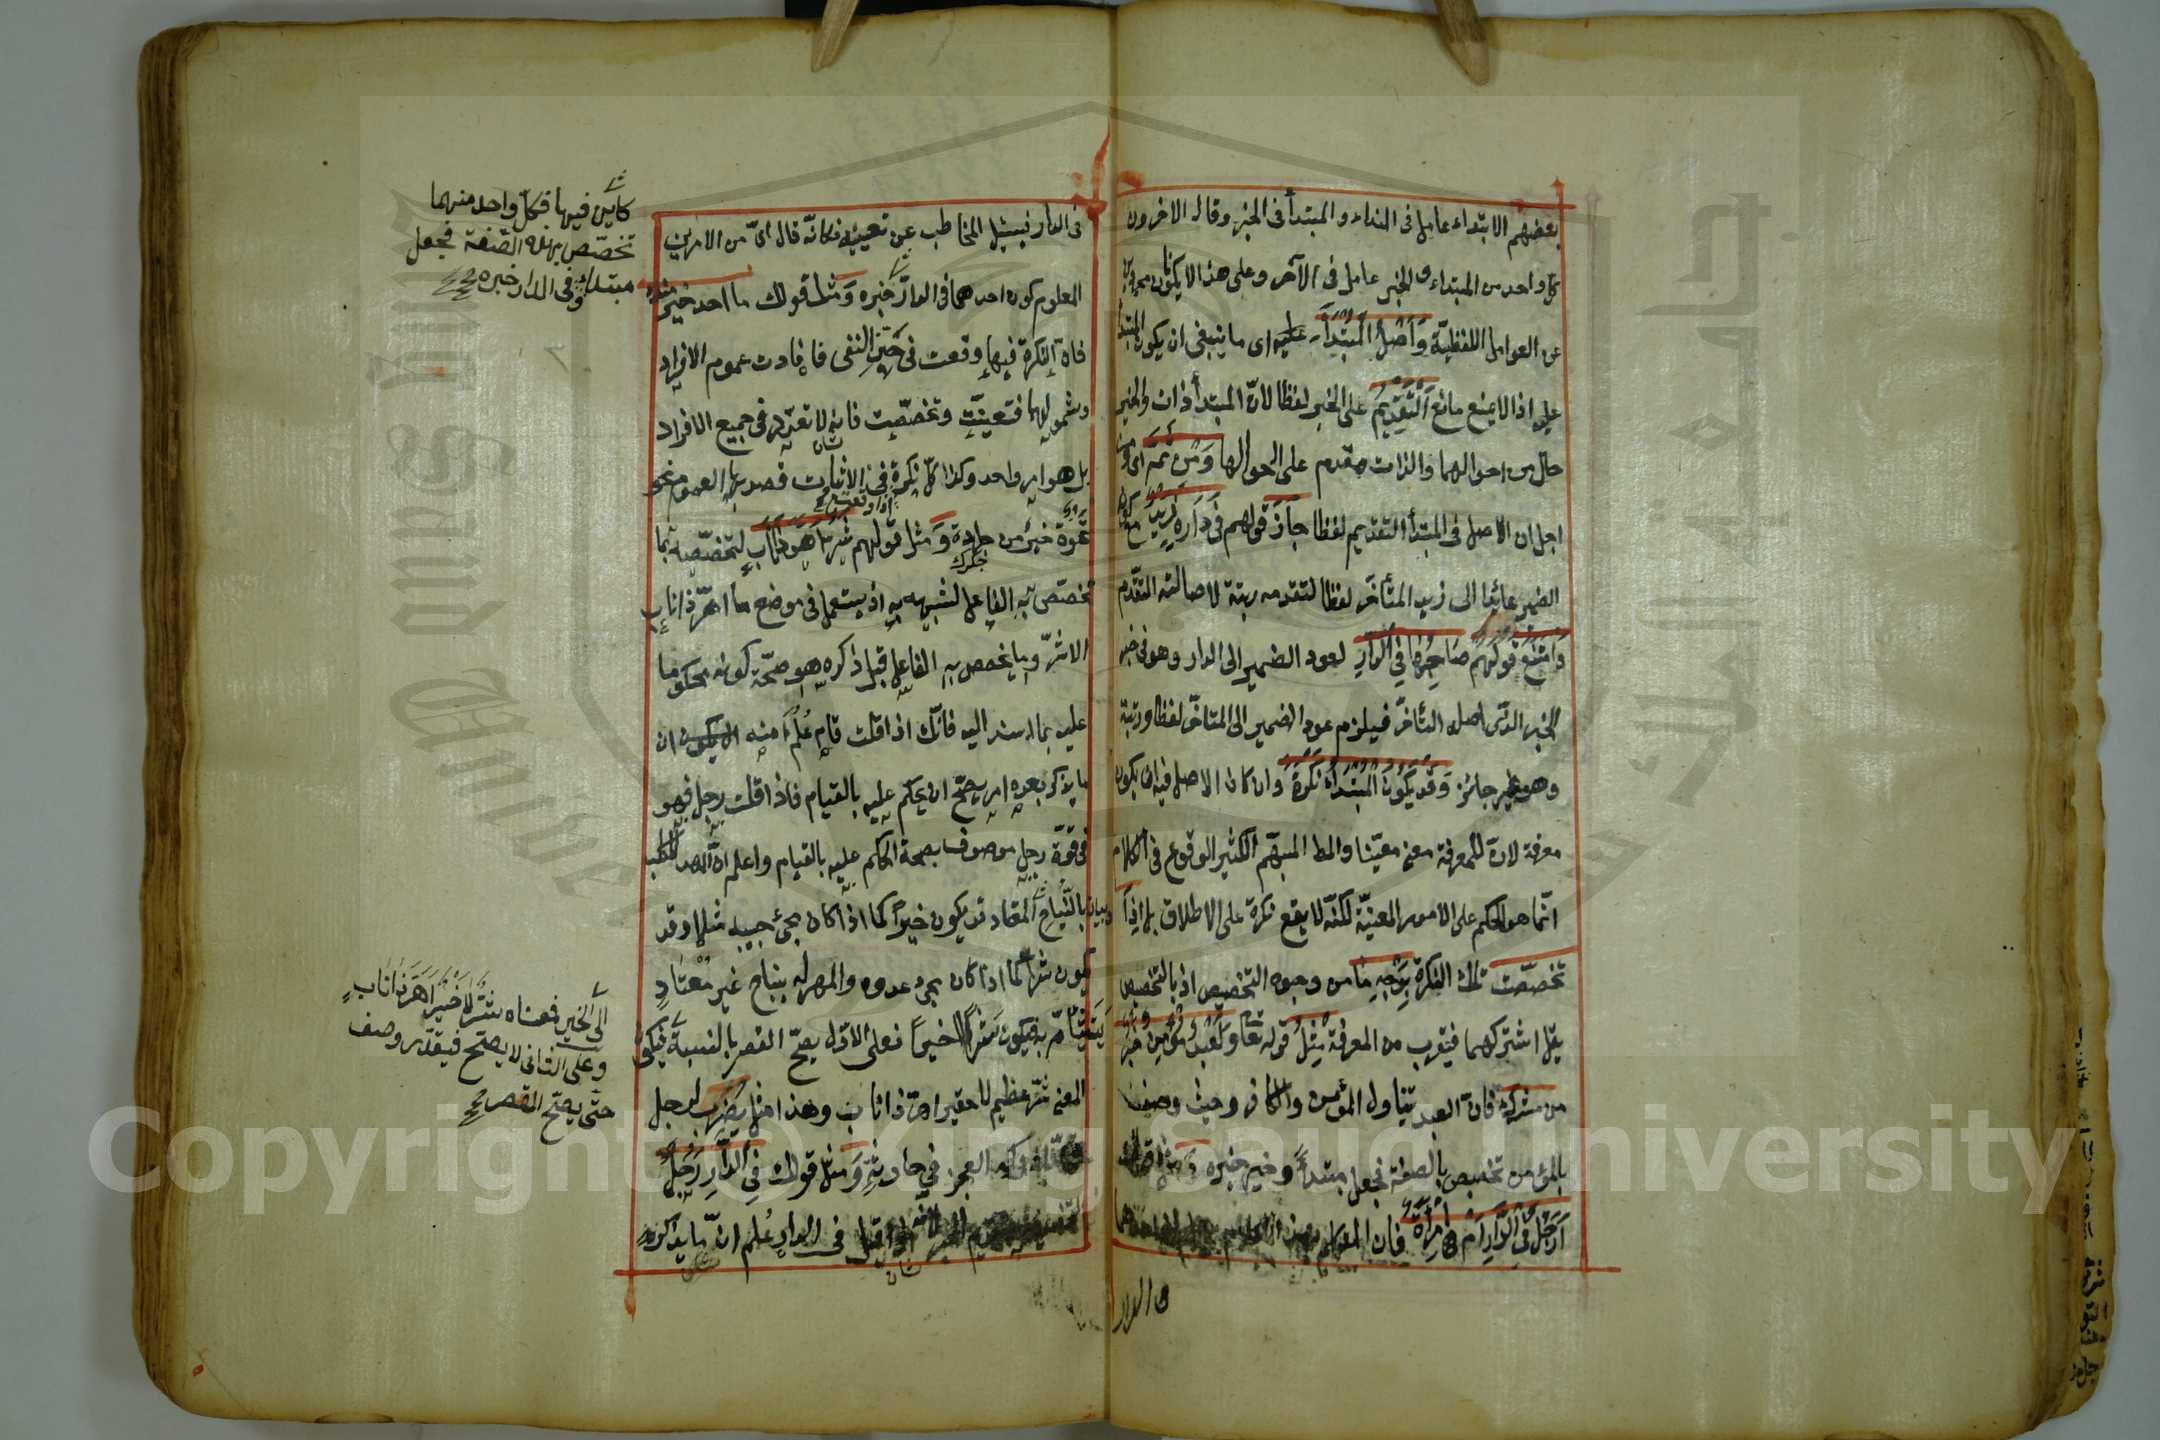 بعضهم الابتداء عامل فى المبتداء والمبتدأ فى الخبر وقال الاخرون
كل واحد من المبتداء والخبر عامل فى الآخر وعلى هذا لا يكونان مجردين
عن العوامل اللفظيّة وَأَصْلُ الْمُبْتَدَأِ عليه اى ما ينبغى ان يكون المبتدأ
عليه اذا لم يمنع مانع اَلتَّقْدِيمُ على الخبر لفظا لانّ المبتدأ ذات والخبر
حال من احوالها والذات مقدم على احوالها وَمِنْ ثَمَّةَ اى ومن
اجل ان الاصل فى المبتدأ التقديم لفظا جَازَ قولهم فِى دَارِهِ زَيْدٌ مع كون
الضمير عائدا الى زيد المتأخّر لفظا لتقدمه رتبة لاصالته التقدّم
وَامْتَنَعَ قولهم صَاحِبُهَا فِي الدَّارِ لعود الضمير الى الدار وهو فى خبر
الخبر الذى اصله التأخّر فيلزم عود الضمير الى المتأخّر لفظا ورتبة
وهو غير جائز وَقَدْ يَكُونُ الْمُبْتَدَأُ نَكِرَةً وان كان الاصل فيه ان يكون
معرفة لانّ للمعرفة معنى معيّنا والمط المهمّ الكثير الوقوع فى الكلام
انّما هو الحكم على الامور المعيّنة لكنّه لا يقع نكرة على الاطلاق بل اِذَا
تخصّصت تلك النكرة بِوَجْهٍ مَا من وجوه التخصيص اذ بالتخصيص
يقل اشتراكها فيقرب من المعرفة مِثْلُ قوله تعا وَلَعَبْدٌ مُؤْمِنٌ خَيْرٌ
من مشرك فانّ العبد يتناول المؤمن والكافر وحيث وصف
بالمؤمن تخصص بالصفة فجعل مبتدأً وخير خبره و
أَرَجُلٌ فِي الدَّارِ أَمْ اِمْرَأَةٌ فان المتكلم بهذا الكلام يعلم ان احدهما
فى الدار
فى الدار فيسئل المخاطب عن تعيينه فكانّه قال اىّ من الامرين
المعلوم كون احدهما فى الدار خبره وَمثل قولك ما احد خير منك
فانّ النكرة فيها وقعت فى حَيِّزِ النفى فافادت عموم الافراد
وشمولها فتعيّنت وتخصّصت فانه لا تعدّد فى جميع الافراد
بل هو امر واحد وكذا كلّ نكرة فى الاثبات قصد بها العموم نحو
تمرة خير من جرادة وَمثل قولهم شَرٌّ اَهَرَّ ذَا نَابٍ لتخصّصه بما
تخصّص به الفاعل لشبهه به اذ يستعمل فى موضع ما اهرّ ذا ناب
الا شرّ وما يخصص به الفاعل قبل ذكره هو صحّة كونه محكوما
عليه بما اسند اليه فانّك اذا قلت قام عُلِمَ منه ان
ما يذكر بعده امر يصحّ ان يحكم عليه بالقيام فاذا قلت رجل فهو
فى قوّة رجل موصوف بصحة الحكم عليه بالقيام واعلم انّ المهر للكلب
بالنُّباح المعتاد قد يكون خيراً كما اذا كان مجئ حبيبه مثلا وقد
يكون شراً كما اذا كان مجئ عدوه والمهر له بنباح غير مُعْتَادٍ
يتشأّم به فيكون شرًّا لا خيراً فعلى الاوّل يصحّ القصر بالنسبة
المعنى شرّ عظيم لا حقير اهرّ ذا ناب وهذا مثل يضرب لرجل
العجز فى حادثة وَمثل قولك فِي الدَّارِ رَجُلٌ
اذا قيل فى الدار عُلم انّ ما يذكر
كاين فيها فكل واحد منهما
تخصّص بهذه الصّفة فجعل
مبتداء وفى الدار خبره
الى الخير فمعناه شَرٌّ لَا خَيْرٌ اَهَرَّ ذَا نَابٍ
وعلى الثانى لا يصحّ فيقدّر وصف
حتّى يصحّ القصر
Copyright © King Saud University